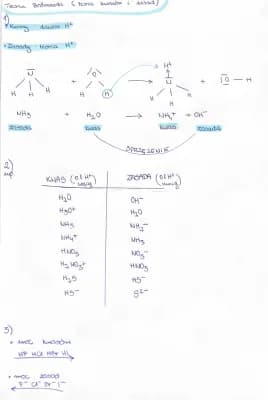 Teoria Brönsteda (teoria kwasów i zasad)
1)
• Kwasy dawca H⁺
• Zasady biorca H⁺
H⁺
N̄ + O → N + |O̅ — H
H H H H H H H
NH₃ + H₂O → NH₄⁺ + OH⁻
zasada kwas kwas zasada
SPRZĘŻENIE
2)
np.
KWAS (o 1 H⁺ więcej) ZASADA (o 1 H⁺ mniej)
H₂O OH⁻
H₃O⁺ H₂O
NH₃ NH₂⁻
NH₄⁺ NH₃
HNO₃ NO₃⁻
H₂NO₃⁺ HNO₃
H₂S HS⁻
HS⁻ S²⁻
3)
• moc kwasów
HF HCl HBr HI
• moc zasad
F⁻ Cl⁻ Br⁻ I⁻